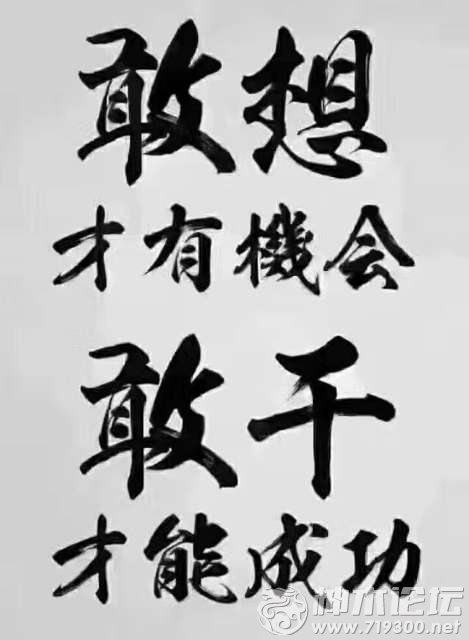 敢想
才有機会
敢干
才能成功
神木论坛
www.719300.net